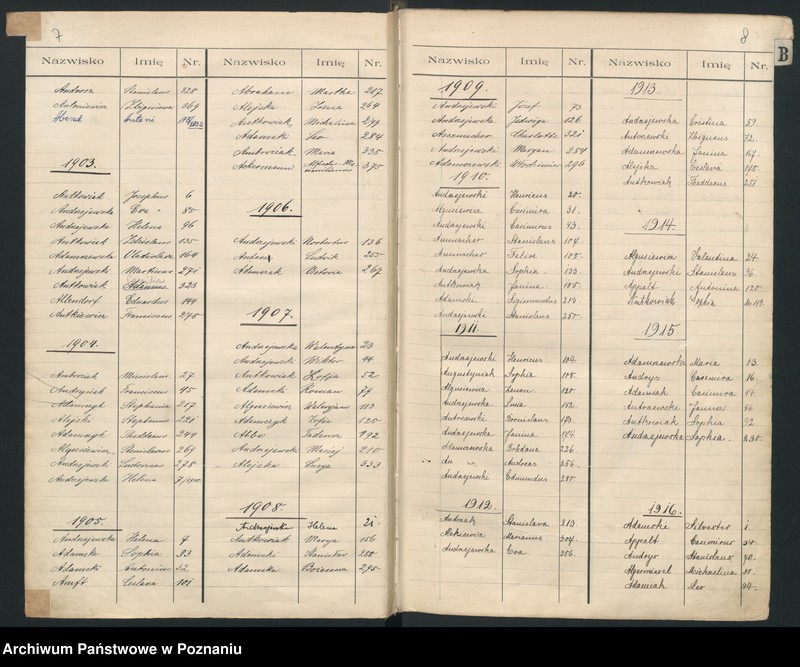 7
Nazwisko Imię Nr.
Andrzej Stanislaus 328
Antoniewicz Zbigniew 369
Abend Antoni
1903.
Antkowiak Josephus 6
Andrzejewska Eva 85
Andrzejewska Helena 96
Antkowiak Zdzislaus 135
Adamczewska Vladislava 164
Andrzejewski Martinus 271
Antkowiak 323
Allendorf Eduardus 144
Antkiewicz Franciscus 278
1904.
Antoniak Miecislaus 27
Andrzejak Franciscus 45
Adamczyk Stephania 217
Alejski Stephanus 221
Adamczyk Thaddaeus 244
Alguniewicz Stanislaus 269
Andrzejewski Ludovicus 278
Andrzejewska Helena
1905.
Andrzejewska Helena 7
Adamska Sophia 23
Adamski Antonius 32
Amft Ceslava 101
Nazwisko Imię Nr.
Abraham Martha 217
Alejska Irena 264
Antkowiak Michalina 279
Adamek Leo 284
Antoniak Maria 335
Ackermann 375
1906.
Andrzejewski Norbertus 136
Antora Ludvik 255
Adamczak Victoria 267
1907.
Andrzejewska Walentyna 23
Andrzejewski Wiktor 44
Antkowiak Zofja 52
Adamski Roman 79
Alguniewicz Walenty 113
Adamczyk Zofia 125
Abbe Tadeusz 192
Andrzejewski Maciej 210
Alejska Łucya 333
1908.
Andrzejewska Helena 21
Antkowiak Marya 156
Adamski Stanisław 258
Adamska Bożenna 295
8
B
Nazwisko Imię Nr.
1909.
Andrzejewski Józef 73
Andrzejewska Jadwiga 126
Charlotta 221
Andrzejewski Maryan 254
Adamczewski Włodzimierz 296
1910.
Andrzejewski Henricus 20.
Alguniewicz Casimira 31.
Andrzejewski Casimirus 43.
Anmacher Stanislaus 104.
Anmacher Felix 108.
Andrzejewska Sophia 133.
Antkowiak Janina 185.
Adamski Sigismundus 213.
Andrzejewski Stanislaus 250.
1911.
Andrzejewski Henricus 104.
Augustyniak Sophia 108.
Alguniewicz Zenon 120.
Andrzejewska Irena 162.
Antczewski Bronislaus 173.
Andrzejewska Janina 174.
Adamowska Bohdana 226.
Andreas 256.
Andrzejewski Edmundus 280.
1912.
Antczak Stanislava 213.
Marianus 304.
Andrzejewska Eva 356.
Nazwisko Imię Nr.
1913.
Andrzejewska Cristina 59.
Antczewski Zbigneus 72.
Adamczewska Janina 167.
Alejska Ceslava 195.
Antkowiak Thaddeus 251.
1914.
Alguniewicz Valentina 24.
Andrzejewski Stanislaus 96.
Appelt Antonina 120.
Antkowiak
1915.
Adamczewska Maria 13.
Andrys Casimira 16.
Adamiak Casimira 44.
Antczewski Janina 46.
Antkowiak Sophia 92.
Andrzejewska Sophia 230.
1916.
Adamski Silvester 1.
Appelt Casimirus 34.
Andrys Stanislaus 70.
Michaelina 81.
Adamiak Leo 94.
Archiwum Państwowe w Poznaniu